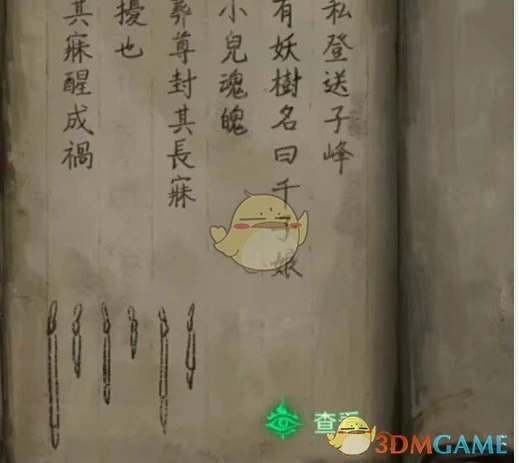 私登送子峰
有妖樹名曰千子娘
小兒魂魄
葬尊封其長寐
擾也
其寐醒成禍
查看
3DMGAME